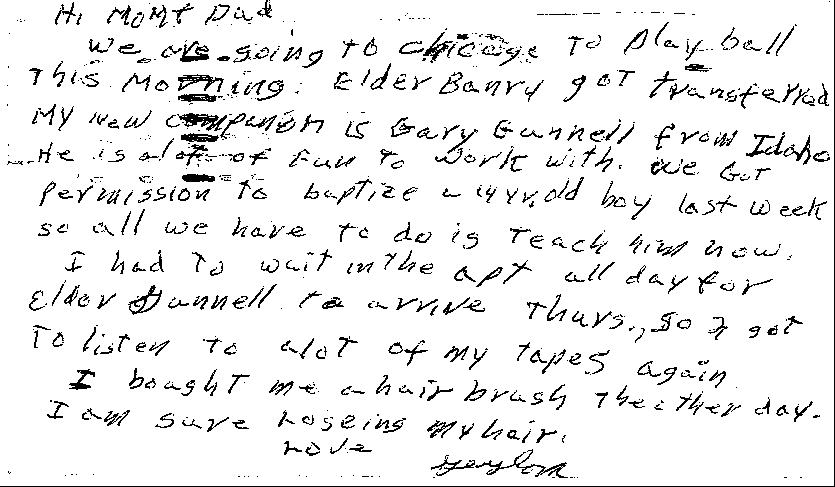 Hi Mom & Dad
We are going to chicago to play ball
This Morning. Elder Banry got transferred
My new companion is Gary Gunnell from Idaho
He is alot of fun to work with. We Got
permission to baptize a 14 yr. old boy last week
so all we have to do is teach him now.
I had to wait in the apt all day for
Elder Gunnell to arrive Thurs., So I got
To listen to alot of my tapes again
I bought me a hair brush the other day.
I am sure Loseing my hair.
Love